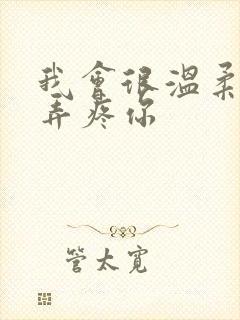 我會很溫柔
弄疼你
管太寬